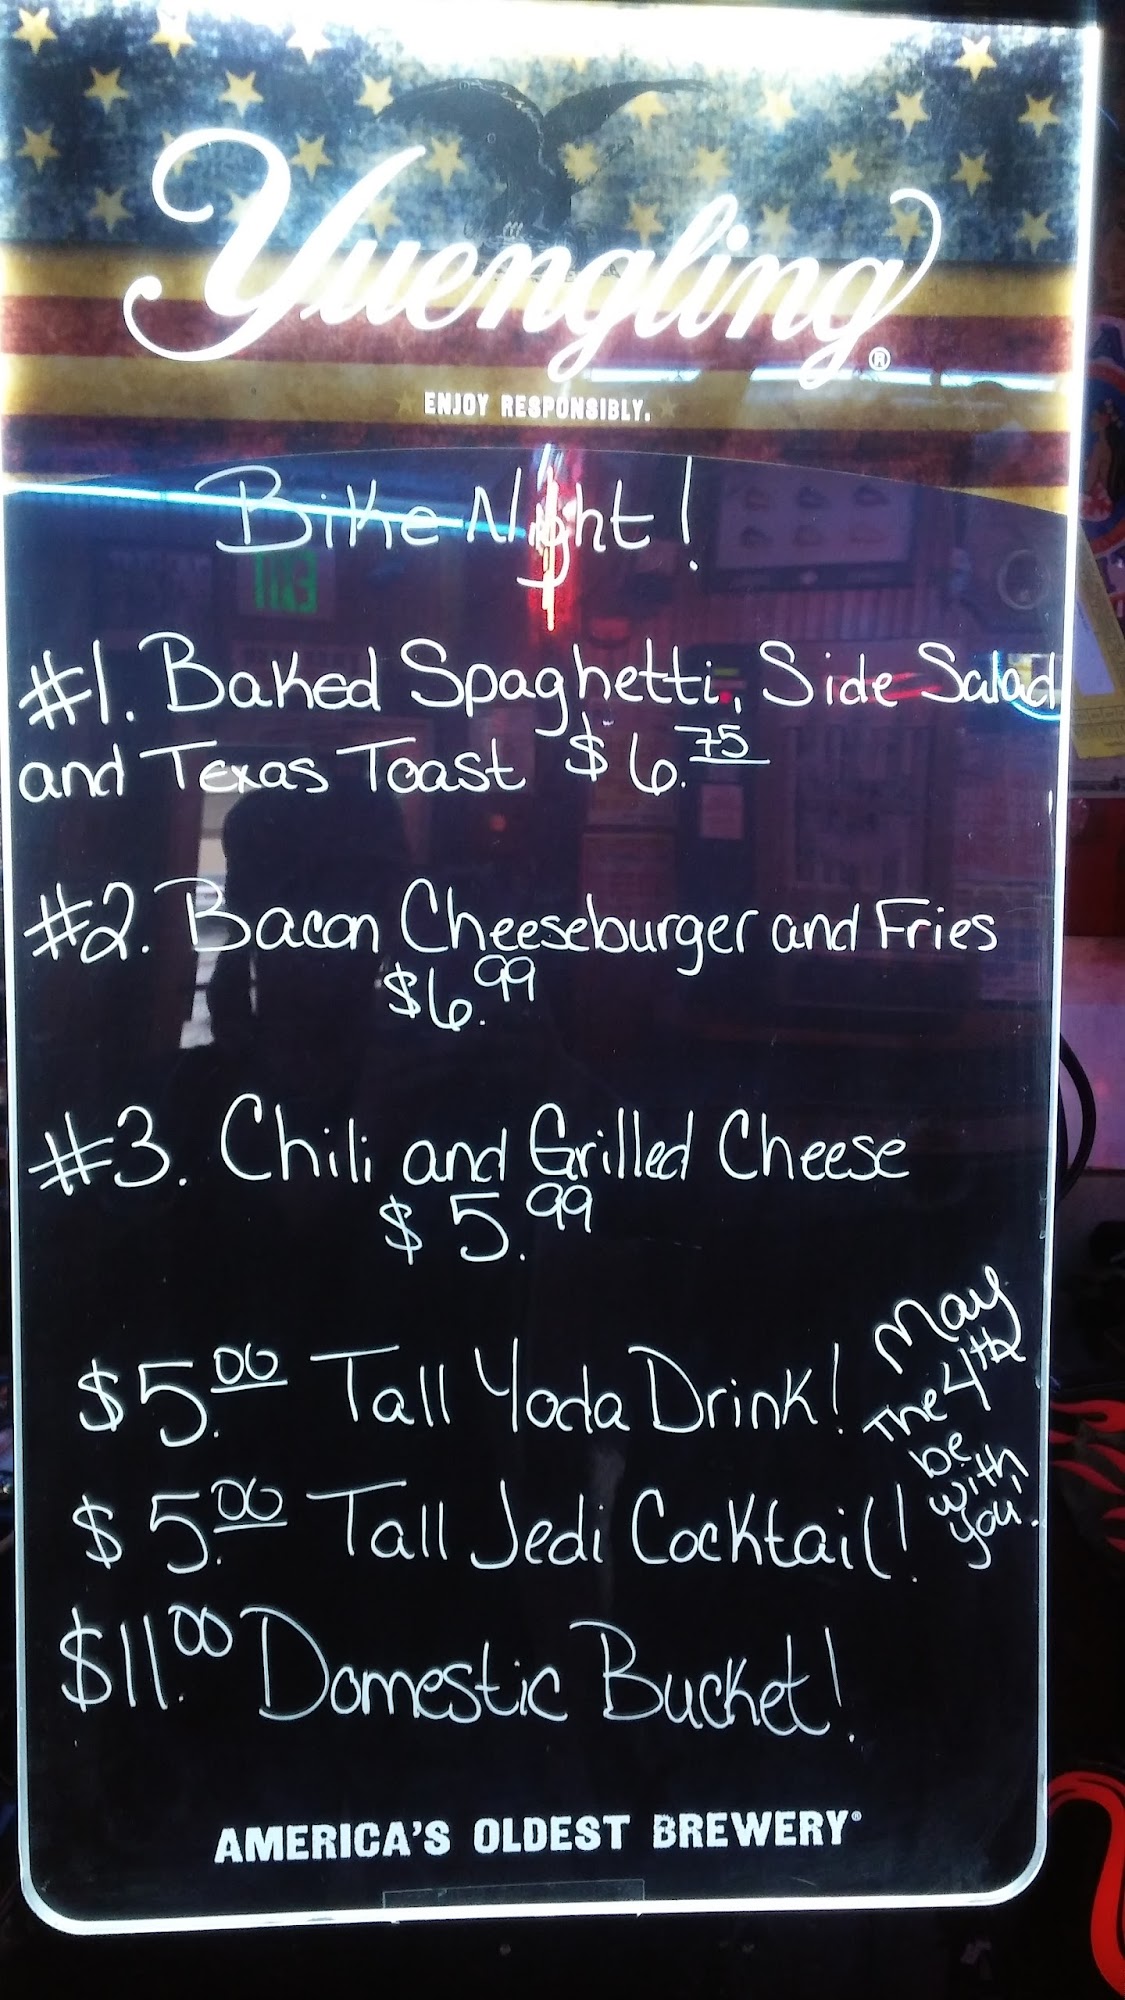 Yuengling®
ENJOY RESPONSIBLY.
Bike Night!
#1. Baked Spaghetti, Side Salad
and Texas Toast $6.75
#2. Bacon Cheeseburger and Fries
$6.99
#3. Chili and Grilled Cheese
$5.99
$5.00 Tall Yoda Drink!
$5.00 Tall Jedi Cocktail!
May
The 4th
be
with
you.
$11.00 Domestic Bucket!
AMERICA'S OLDEST BREWERY®